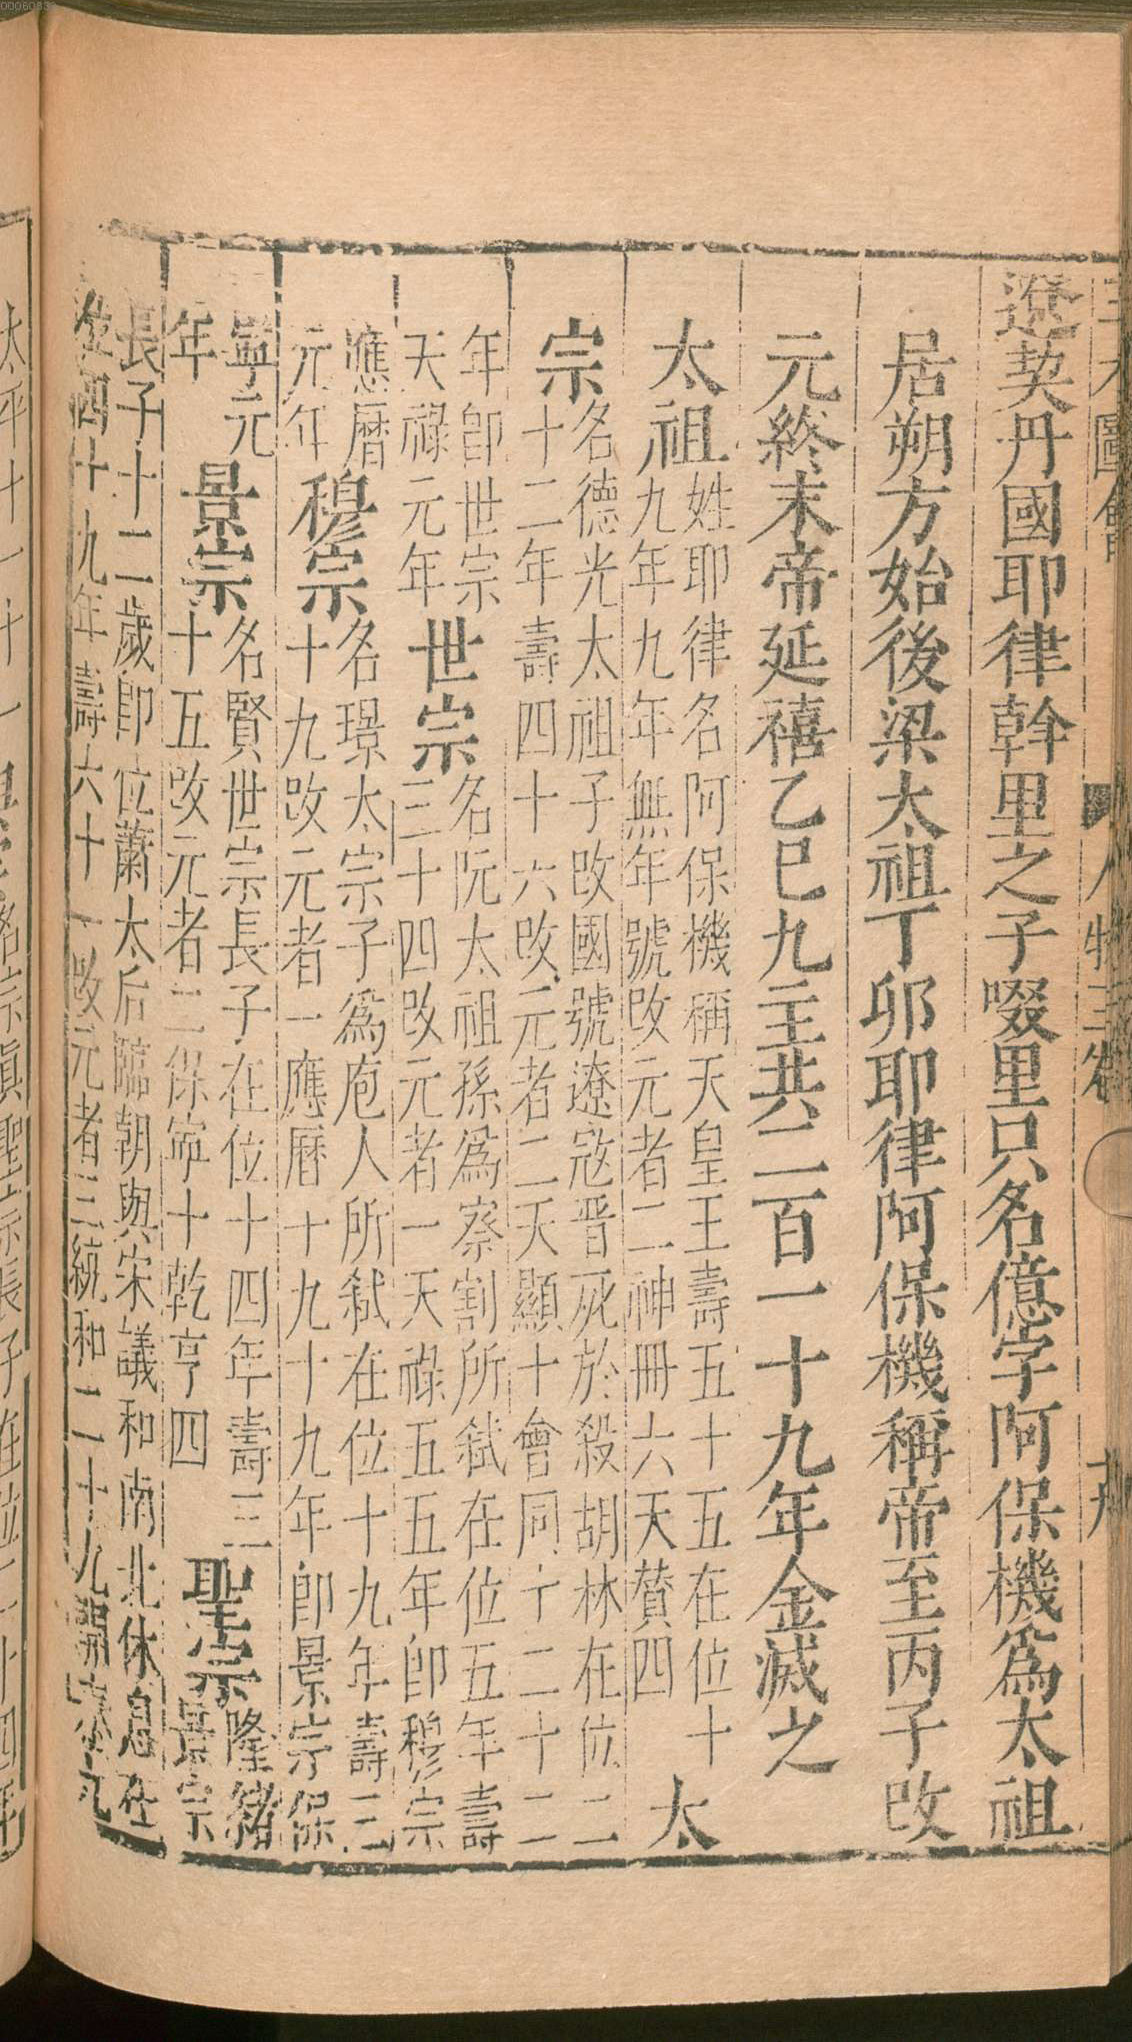 遼契丹國耶律斡里之子啜里只名億字阿保機為太祖
居朔方始後梁太祖丁卯耶律阿保機稱帝至丙子改
元終末帝延禧乙巳九主共二百一十九年金滅之
太祖
姓耶律名阿保機稱天皇王壽五十五在位十
九年九年無年號改元者二神冊六天贊四
太
宗
名德光太祖子改國號遼寇晋死於殺胡林在位二
十二年壽四十六改元者二天顯十會同十二十二
年即世宗
天祿元年
世宗
名阮太祖孫為察割所弒在位五年壽
三十四改元者一天祿五五年即穆宗
應曆
元年
穆宗
名璟太宗子為庖人所弒在位十九年壽三
十九改元者一應曆十九十九年即景宗保
寧元
年
景宗
名賢世宗長子在位十四年壽三
十五改元者二保寧十乾亨四
聖宗
隆緒
景宗
長子十二歲即位蕭太后臨朝與宋議和南北休息在
位四十九年壽六十一改元者三統和二十九開泰九